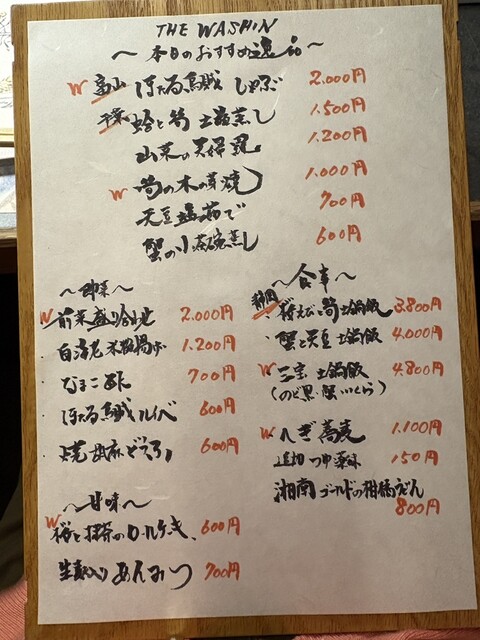 THE WASHIN
〜本日のおすすめ逸品〜
W 富山 ほたる烏賊 しゃぶ 2.000円
千葉 蛤と筍 土瓶蒸し 1.500円
山菜の天婦羅 1.200円
W 筍の木の芽焼 1.000円
天豆塩茹で 700円
蟹の小茶碗蒸し 600円
〜御菜〜
W 前菜盛り合わせ 2.000円
白海老 唐揚げ 1.200円
なまこ酢 700円
ほたる烏賊ルイベ 600円
焼胡麻どうふ 600円
〜甘味〜
W 桜と抹茶のロールケーキ 600円
生麩入りあんみつ 700円
〜食事〜
静岡 桜えびと筍土鍋飯 3.800円
・蟹と天豆 土鍋飯 4.000円
W 三宝 土鍋飯 4.800円
(のど黒・蟹・いくら)
W へぎ蕎麦 1.100円
追加つゆ薬味 150円
湘南ゴールドの柑橘うどん
800円